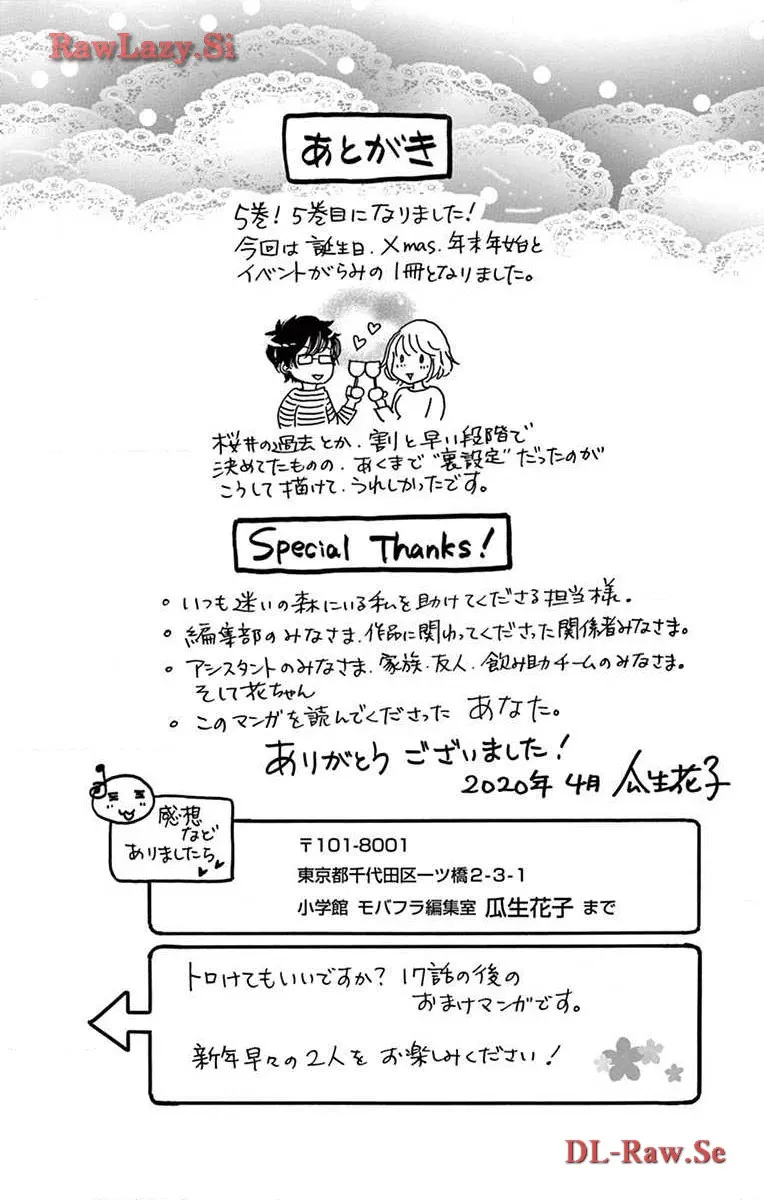 RawLazy.Si
あとがき
5巻！5巻目になりました！
今回は誕生日、Xmas、年末年始と
イベントがらみの1冊となりました。
桜井の過去とか、割と早い段階で
決めてたものの、あくまで"裏設定"だったのが
こうして描けて、うれしかったです。
Special Thanks!
・いつも迷いの森にいる私を助けてくださる担当様。
・編集部のみなさま、作品に関わってくださった関係者みなさま。
・アシスタントのみなさま、家族・友人、飲み助チームのみなさま。
そして花ちゃん
・このマンガを読んでくださった あなた。
ありがとうございました！
2020年 4月 瓜生花子
感想
など
ありましたら
〒101-8001
東京都千代田区一ツ橋2-3-1
小学館 モバフラ編集室 瓜生花子 まで
トロけてもいいですか？ 17話の後の
おまけマンガです。
新年早々の2人を お楽しみください！
DL-Raw.Se